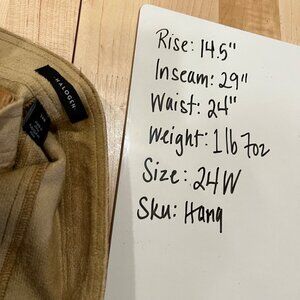 HALOGEN
Rise: 14.5"
Inseam: 29"
Waist: 24"
Weight: 1lb 7oz
Size: 24W
Sku: Hang